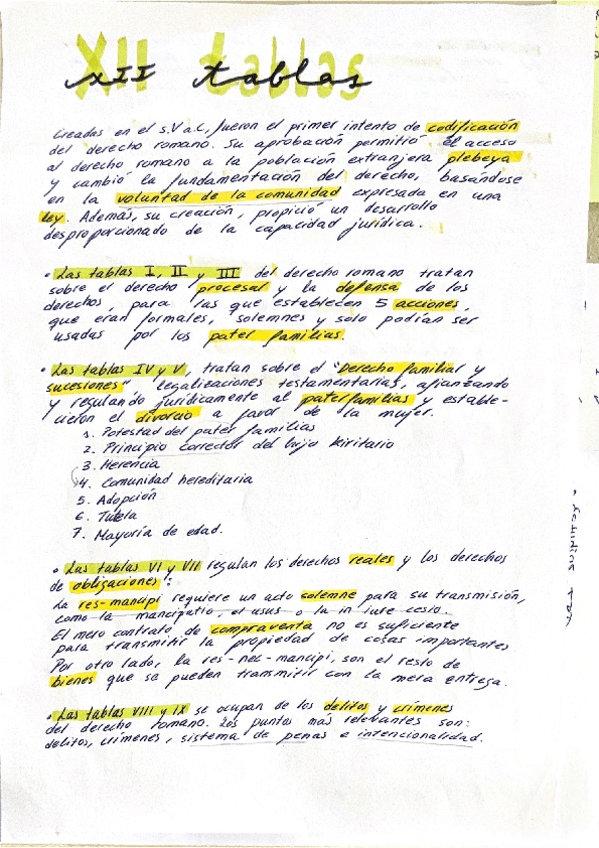 XII tablas
xII tablas
Creadas en el s.V a.C, fueron el primer intento de codificación
del derecho romano. Su aprobación permitió el acceso
al derecho romano a la población extranjera plebeya
y cambió la fundamentación del derecho, basándose
en la voluntad de la comunidad expresada en una
ley. Además, su creación, propició un desarrollo
desproporcionado de la capacidad jurídica.
• Las tablas I, II y III del derecho romano tratan
sobre el derecho procesal y la defensa de los
derechos, para las que establecen 5 acciones,
que eran formales, solemnes y solo podían ser
usadas por los pater familias.
• Las tablas IV y V, tratan sobre el "Derecho familiar y
sucesiones", legalizaciones testamentarias, afianzando
y regulando jurídicamente al paterfamilias y estable-
cieron el divorcio a favor de la mujer.
1. Potestad del pater familias
2. Principio corrector del bajo kiritario
3. Herencia
4. Comunidad hereditaria
5. Adopción
6. Tutela
7. Mayoría de edad.
• Las tablas VI y VII regulan los derechos reales y los derechos
de obligaciones:
La res-mancipi requiere un acto solemne para su transmisión,
como la mancipatio, el usus o la in iure cesio.
El mero contrato de compraventa no es suficiente
para transmitir la propiedad de cosas importantes
Por otro lado, la res-nec-mancipi, son el resto de
bienes que sa pueden transmitir con la mera entrega.
• Las tablas VIII y IX se ocupan de los delitos y crímenes
del derecho romano. Los puntos más relevantes son:
delitos, crímenes, sistema de penas e intencionalidad.